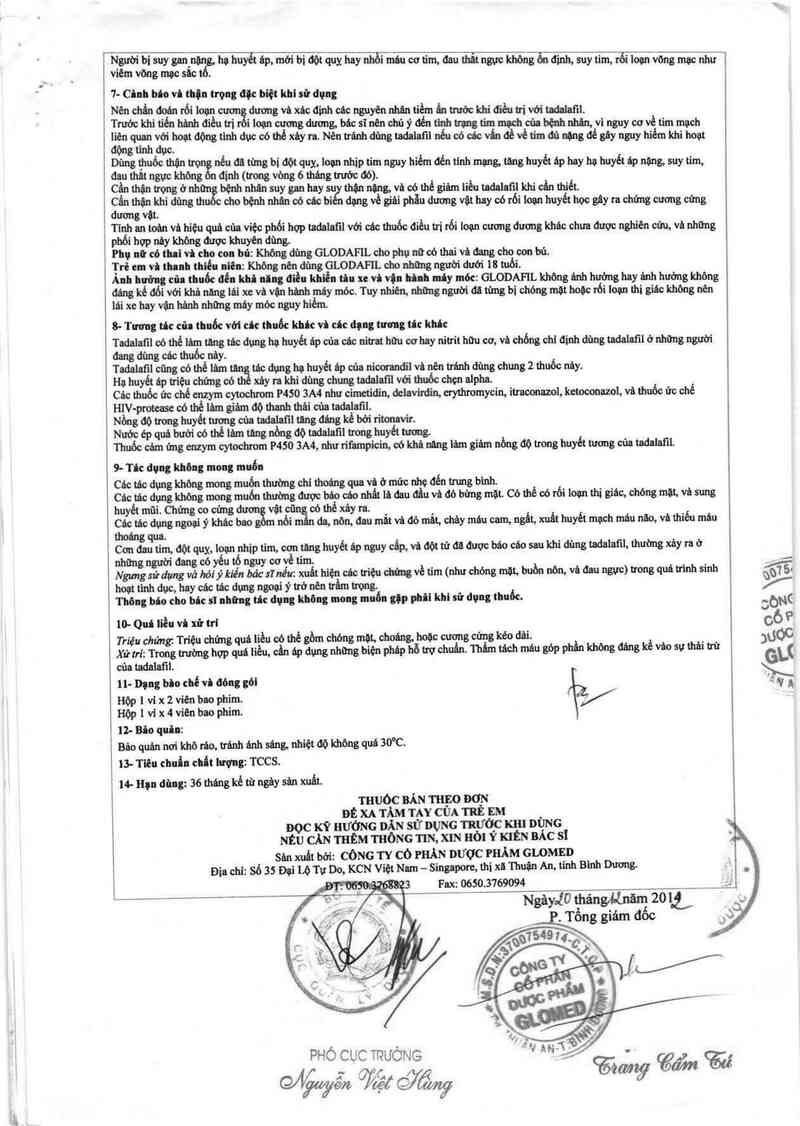 Người bị suy gan nặng, hạ huyết áp, mới bị đột quỵ hay nhồi máu cơ tim, đau thắt ngực không ổn định, suy tim, rối loạn võng mạc như
viêm võng mạc sắc tố.
7- Cảnh báo và thận trọng đặc biệt khi sử dụng
Nên chẩn đoán rối loạn cương dương và xác định các nguyên nhân tiềm ẩn trước khi điều trị với tadalafil.
Trước khi tiến hành điều trị rối loạn cương dương, bác sĩ nên chú ý đến tình trạng tim mạch của bệnh nhân, vì nguy cơ về tim mạch
liên quan với hoạt động tình dục có thể xảy ra. Nên tránh dùng tadalafil nếu có các vấn đề về tim đủ nặng để gây nguy hiểm khi hoạt
động tình dục.
Dùng thuốc thận trọng nếu đã từng bị đột quỵ, loạn nhịp tim nguy hiểm đến tính mạng, tăng huyết áp hay hạ huyết áp nặng, suy tim,
đau thắt ngực không ổn định (trong vòng 6 tháng trước đó).
Cần thận trọng ở những bệnh nhân suy gan hay suy thận nặng, và có thể giảm liều tadalafil khi cần thiết.
Cần thận khi dùng thuốc cho bệnh nhân có các biến dạng về giải phẫu dương vật hay có rối loạn huyết học gây ra chứng cương cứng
dương vật.
Tính an toàn và hiệu quả của việc phối hợp tadalafil với các thuốc điều trị rối loạn cương dương khác chưa được nghiên cứu, và những
phối hợp này không được khuyên dùng.
Phụ nữ có thai và cho con bú: Không dùng GLODAFIL cho phụ nữ có thai và đang cho con bú.
Trẻ em và thanh thiếu niên: Không nên dùng GLODAFIL cho những người dưới 18 tuổi.
Ảnh hưởng của thuốc đến khả năng điều khiển tàu xe và vận hành máy móc: GLODAFIL không ảnh hưởng hay ảnh hưởng không
đáng kể đối với khả năng lái xe và vận hành máy móc. Tuy nhiên, những người đã từng bị chóng mặt hoặc rối loạn thị giác không nên
lái xe hay vận hành những máy móc nguy hiểm.
8- Tương tác của thuốc với các thuốc khác và các dạng tương tác khác
Tadalafil có thể làm tăng tác dụng hạ huyết áp của các nitrat hữu cơ hay nitrit hữu cơ, và chống chỉ định dùng tadalafil ở những người
đang dùng các thuốc này.
Tadalafil cũng có thể làm tăng tác dụng hạ huyết áp của nicorandil và nên tránh dùng chung 2 thuốc này.
Hạ huyết áp triệu chứng có thể xảy ra khi dùng chung tadalafil với thuốc chẹn alpha.
Các thuốc ức chế enzym cytochrom P450 3A4 như cimetidin, delavirdin, erythromycin, itraconazol, ketoconazol, và thuốc ức chế
HIV-protease có thể làm giảm độ thanh thải của tadalafil.
Nồng độ trong huyết tương của tadalafil tăng đáng kể bởi ritonavir.
Nước ép quả bưởi có thể làm tăng nồng độ tadalafil trong huyết tương.
Thuốc cảm ứng enzym cytochrom P450 3A4, như rifampicin, có khả năng làm giảm nồng độ trong huyết tương của tadalafil.
9- Tác dụng không mong muốn
Các tác dụng không mong muốn thường chỉ thoáng qua và ở mức nhẹ đến trung bình.
Các tác dụng không mong muốn thường được báo cáo nhất là đau đầu và đỏ bừng mặt. Có thể có rối loạn thị giác, chóng mặt, và sung
huyết mũi. Chứng co cứng dương vật cũng có thể xảy ra.
Các tác dụng ngoại ý khác bao gồm nổi mẩn da, nôn, đau mắt và đỏ mắt, chảy máu cam, ngất, xuất huyết mạch máu não, và thiếu máu
thoáng qua.
Cơn đau tim, đột quỵ, loạn nhịp tim, cơn tăng huyết áp nguy cấp, và đột tử đã được báo cáo sau khi dùng tadalafil, thường xảy ra ở
những người đang có yếu tố nguy cơ về tim.
Ngưng sử dụng và hỏi ý kiến bác sĩ nếu: xuất hiện các triệu chứng về tim (như chóng mặt, buồn nôn, và đau ngực) trong quá trình sinh
hoạt tình dục, hay các tác dụng ngoại ý trở nên trầm trọng.
Thông báo cho bác sĩ những tác dụng không mong muốn gặp phải khi sử dụng thuốc.
10- Quá liều và xử trí
Triệu chứng: Triệu chứng quá liều có thể gồm chóng mặt, choáng, hoặc cương cứng kéo dài.
Xử trí: Trong trường hợp quá liều, cần áp dụng những biện pháp hỗ trợ chuẩn. Thẩm tách máu góp phần không đáng kể vào sự thải trừ
của tadalafil.
11- Dạng bào chế và đóng gói
Hộp 1 vỉ x 2 viên bao phim.
Hộp 1 vỉ x 4 viên bao phim.
12- Bảo quản:
Bảo quản nơi khô ráo, tránh ánh sáng, nhiệt độ không quá 30°C.
13- Tiêu chuẩn chất lượng: TCCS.
14- Hạn dùng: 36 tháng kể từ ngày sản xuất.
THUỐC BÁN THEO ĐƠN
ĐỂ XA TẦM TAY CỦA TRẺ EM
ĐỌC KỸ HƯỚNG DẪN SỬ DỤNG TRƯỚC KHI DÙNG
NẾU CẦN THÊM THÔNG TIN, XIN HỎI Ý KIẾN BÁC SĨ
Sản xuất bởi: CÔNG TY CỔ PHẦN DƯỢC PHẨM GLOMED
Địa chỉ: Số 35 Đại Lộ Tự Do, KCN Việt Nam – Singapore, thị xã Thuận An, tỉnh Bình Dương.
ĐT: 0650.3768823 Fax: 0650.3769094
Ngày 20 tháng 12 năm 2012
P. Tổng giám đốc
M.S.D.N:3700754914-C.T.C.P
CÔNG TY
CỔ PHẦN
DƯỢC PHẨM
GLOMED
PHÓ CỤC TRƯỞNG
Nguyễn Việt Hùng
Trảng Cẩm Tú